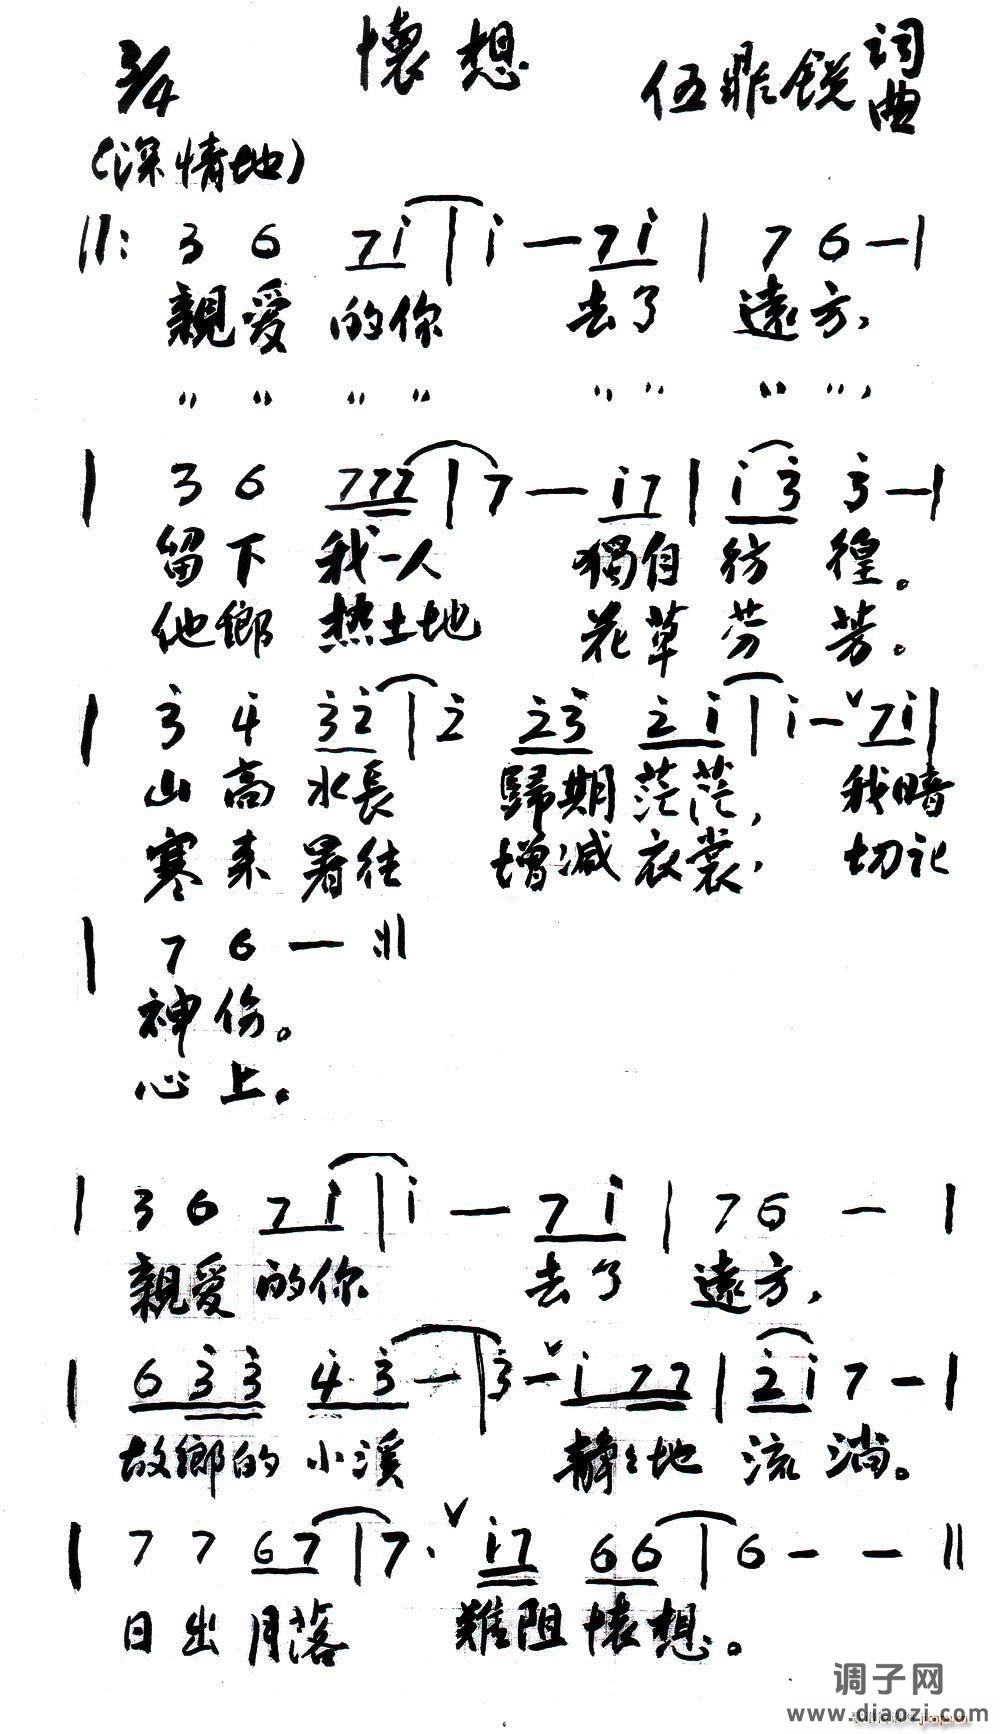 懷想
3/4
伍鼎銳 詞曲
(深情地)
‖: 3 6 7i | i — 7i | 7 6 — |
親愛 的你 去了 遠方,
〃 〃 〃 〃 〃 〃 〃 〃,
| 3 6 777 | 7 — i7 | i3 3 — |
留下 我一人 獨自 彷徨。
他鄉 热土地 花草 芬芳。
| 3 4 32 | 2 23 2i | i — ∨ 7i |
山高 水長 歸期 茫茫, 我暗
寒来 暑往 增減 衣裳, 切记
| 7 6 — :‖
神伤。
心上。
| 3 6 7i | i — 7i | 7 6 — |
親愛的你 去了 遠方,
| 633 4·3 — | 3 — ∨ i77 | 2i 7 — |
故鄉的 小溪 靜々地 流淌。
| 7 7 67 | 7· ∨ i7 66 | 6 — — ‖
日出月落 難阻懷想。
调子网
www.diaozi.com